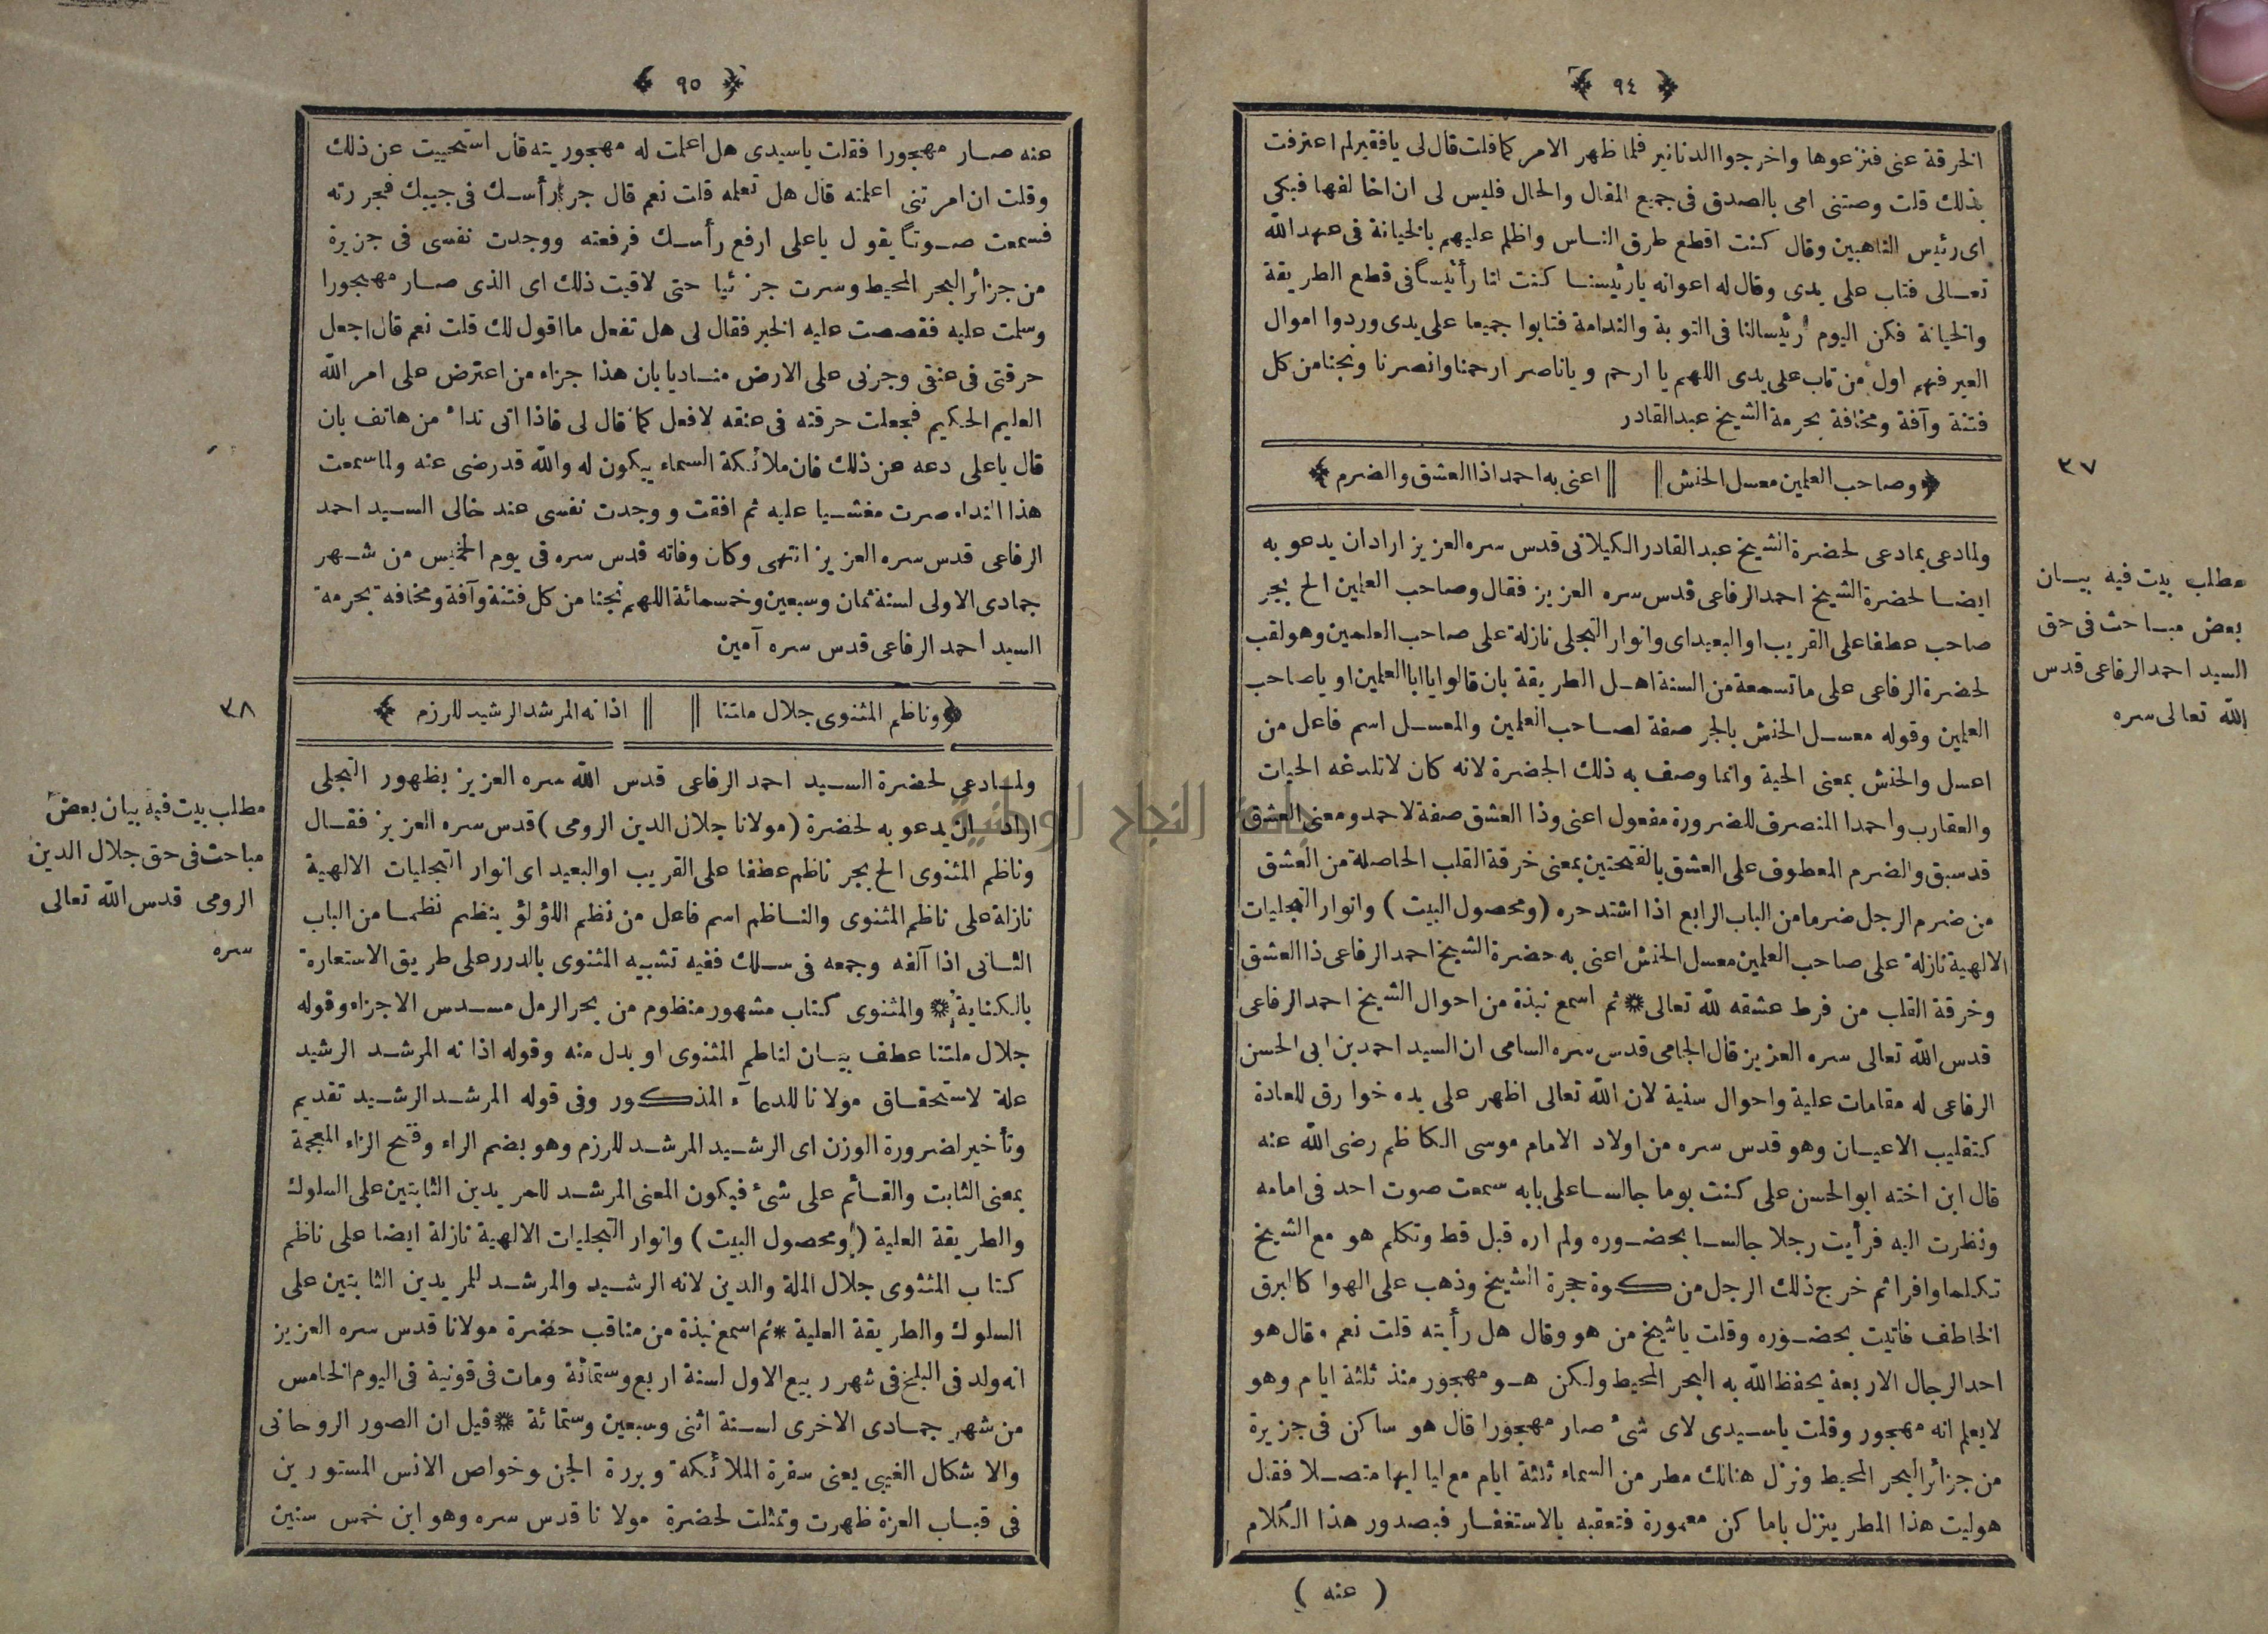 ﴿ ٩٤ ﴾
الخرقة عنى فنزعوها واخرجوا الدنانير فلما ظهر الامر كما قلت قال لى يا فقير لم اعترفت
بذلك قلت وصتنى امى بالصدق فى جميع المقال والحال فليس لى ان اخالفها فبكى
اى رئيس الناهبين وقال كنت اقطع طرق الناس واظلم عليهم بالخيانة فى عهد الله
تعالى فتاب على يدى وقال له اعوانه يا رئيسنا كنت انا رأئيسا فى قطع الطريقة
والخيانة فكن اليوم رئيسا لنا فى التوبة والندامة فتابوا جميعا على يدى وردوا اموال
العير فهم اول من تاب على يدى اللهم يا ارحم ويا ناصر ارحمنا وانصرنا ونجنا من كل
فتنة وآفة ومخافة بحرمة الشيخ عبد القادر
٣٧
﴿ وصاحب العلمين معسل الحنش || || اعنى به احمد اذا العشق والضرم ﴾
ولما دعى بما دعى لحضرة الشيخ عبد القادر الكيلانى قدس سره العزيز اراد ان يدعو به
ايضا لحضرة الشيخ احمد الرفاعى قدس سره العزيز فقال وصاحب العلمين الخ بجر
صاحب عطفا على القريب او البعيد اى وانوار التجلى نازلة على صاحب العلمين وهو لقب
لحضرة الرفاعى على ما تسمعة من السنة اهل الطريقة بان قالوا يا ابا العلمين او يا صاحب
العلمين وقوله معسل الحنش بالجر صفة لصاحب العلمين والمعسل اسم فاعل من
اعسل والحنش بمعنى الحية وانما وصف به ذلك الحضرة لانه كان لا تلدغه الحيات
والعقارب واحمدا المنصرف للضرورة مفعول اعنى وذا العشق صفة لاحمد ومعنى العشق
قد سبق والضرم المعطوف على العشق بالفتحتين بمعنى خرقة القلب الحاصلة من العشق
من ضرم الرجل ضرما من الباب الرابع اذا اشتد حره (ومحصول البيت) وانوار التجليات
الالهية نازلة على صاحب العلمين معسل الحنش اعنى به حضرة الشيخ احمد الرفاعى ذا العشق
وخرقة القلب من فرط عشقه لله تعالى * ثم اسمع نبذة من احوال الشيخ احمد الرفاعى
قدس الله تعالى سره العزيز قال الجامى قدس سره السامى ان السيد احمد بن ابى الحسن
الرفاعى له مقامات علية واحوال سنية لان الله تعالى اظهر على يده خوارق للعادة
كتقليب الاعيان وهو قدس سره من اولاد الامام موسى الكاظم رضى الله عنه
قال ابن اخته ابو الحسن على كنت يوما جالسا على بابه سمعت صوت احد فى امامه
ونظرت اليه فرأيت رجلا جالسا بحضوره ولم اره قبل قط وتكلم هو مع الشيخ
تكلما وافرا ثم خرج ذلك الرجل من كوة حجرة الشيخ وذهب على الهوا كالبرق
الخاطف فاتيت بحضوره وقلت يا شيخ من هو وقال هل رأيته قلت نعم قال هو
احد الرجال الاربعة يحفظ الله به البحر المحيط ولكن هو مهجور منذ ثلثة ايام وهو
لا يعلم انه مهجور وقلت يا سيدى لاى شئ صار مهجورا قال هو ساكن فى جزيرة
من جزائر البحر المحيط ونزل هنالك مطر من السماء ثلثة ايام مع لياليها متصلا فقال
هو ليت هذا المطر ينزل باماكن معمورة فتعقبه بالاستغفار فبصدور هذا الكلام
( عنه )
مطلب بيت فيه بيان
بعض مباحث فى حق
السيد احمد الرفاعى قدس
الله تعالى سره
﴿ ٩٥ ﴾
عنه صار مهجورا فقلت يا سيدى هل اعلمت له مهجوريته قال استحييت عن ذلك
وقلت ان امرتنى اعلمته قال هل تعلمه قلت نعم قال جر رأسك فى جيبك فجررته
فسمعت صوتا يقول يا على ارفع رأسك فرفعته ووجدت نفسى فى جزيرة
من جزائر البحر المحيط وسرت جزئيا حتى لاقيت ذلك اى الذى صار مهجورا
وسلمت عليه فقصصت عليه الخبر فقال لى هل تفعل ما اقول لك قلت نعم قال اجعل
حرقتى فى عنقى وجرنى على الارض مناديا بان هذا جزاء من اعترض على امر الله
العليم الحكيم فجعلت حرقته فى عنقه لافعل كما قال لى فاذا اتى نداء من هاتف بان
قال يا على دعه عن ذلك فان ملائكة السماء يبكون له والله قد رضى عنه ولما سمعت
هذا النداء صرت مغشيا عليه ثم افقت ووجدت نفسى عند خالى السيد احمد
الرفاعى قدس سره العزيز انتهى وكان وفاته قدس سره فى يوم الخميس من شهر
جمادى الاولى لسنة ثمان وسبعين وخمسمائة اللهم نجنا من كل فتنة وآفة ومخافه بحرمة
السيد احمد الرفاعى قدس سره آمين
٣٨
﴿ وناظم المثنوى جلال ملتنا || || اذا نه المرشد الرشيد للرزم ﴾
ولما دعى لحضرة السيد احمد الرفاعى قدس الله سره العزيز بظهور التجلى
اراد ان يدعو به لحضرة (مولانا جلال الدين الرومى) قدس سره العزيز فقال
وناظم المثنوى الخ بجر ناظم عطفا على القريب او البعيد اى انوار التجليات الالهية
نازلة على ناظم المثنوى والناظم اسم فاعل من نظم اللؤلؤ ينظم نظما من الباب
الثانى اذا آلفه وجمعه فى سلك ففيه تشبيه المثنوى بالدرر على طريق الاستعارة
بالكناية * والمثنوى كتاب مشهور منظوم من بحر الرمل مسدس الاجزاء وقوله
جلال ملتنا عطف بيان لناطم المثنوى او بدل منه وقوله اذا نه المرشد الرشيد
علة لاستحقاق مولانا للدعآء المذكور وفى قوله المرشد الرشيد تقديم
وتأخير لضرورة الوزن اى الرشيد المرشد للرزم وهو بضم الراء وفتح الزاء المعجمة
بمعنى الثابت والقائم على شئ فيكون المعنى المرشد للمريدين الثابتين على السلوك
والطريقة العلية (ومحصول البيت) وانوار التجليات الالهية نازلة ايضا على ناظم
كتاب المثنوى جلال الملة والدين لانه الرشيد والمرشد للمريدين الثابتين على
السلوك والطريقة العلية * ثم اسمع نبذة من مناقب حضرة مولانا قدس سره العزيز
انه ولد فى البلخ فى شهر ربيع الاول لسنة اربع وستمائة ومات فى قونية فى اليوم الخامس
من شهر جمادى الاخرى لسنة اثنى وسبعين وستمائة * قيل ان الصور الروحانى
والاشكال الغيبى يعنى سفرة الملائكة وبررة الجن وخواص الانس المستورين
فى قباب العزة ظهرت وتمثلت لحضرة مولانا قدس سره وهو ابن خمس سنين
مطلب بيت فيه بيان بعض
مباحث فى حق جلال الدين
الرومى قدس الله تعالى
سره
جامعة النجاح الوطنية